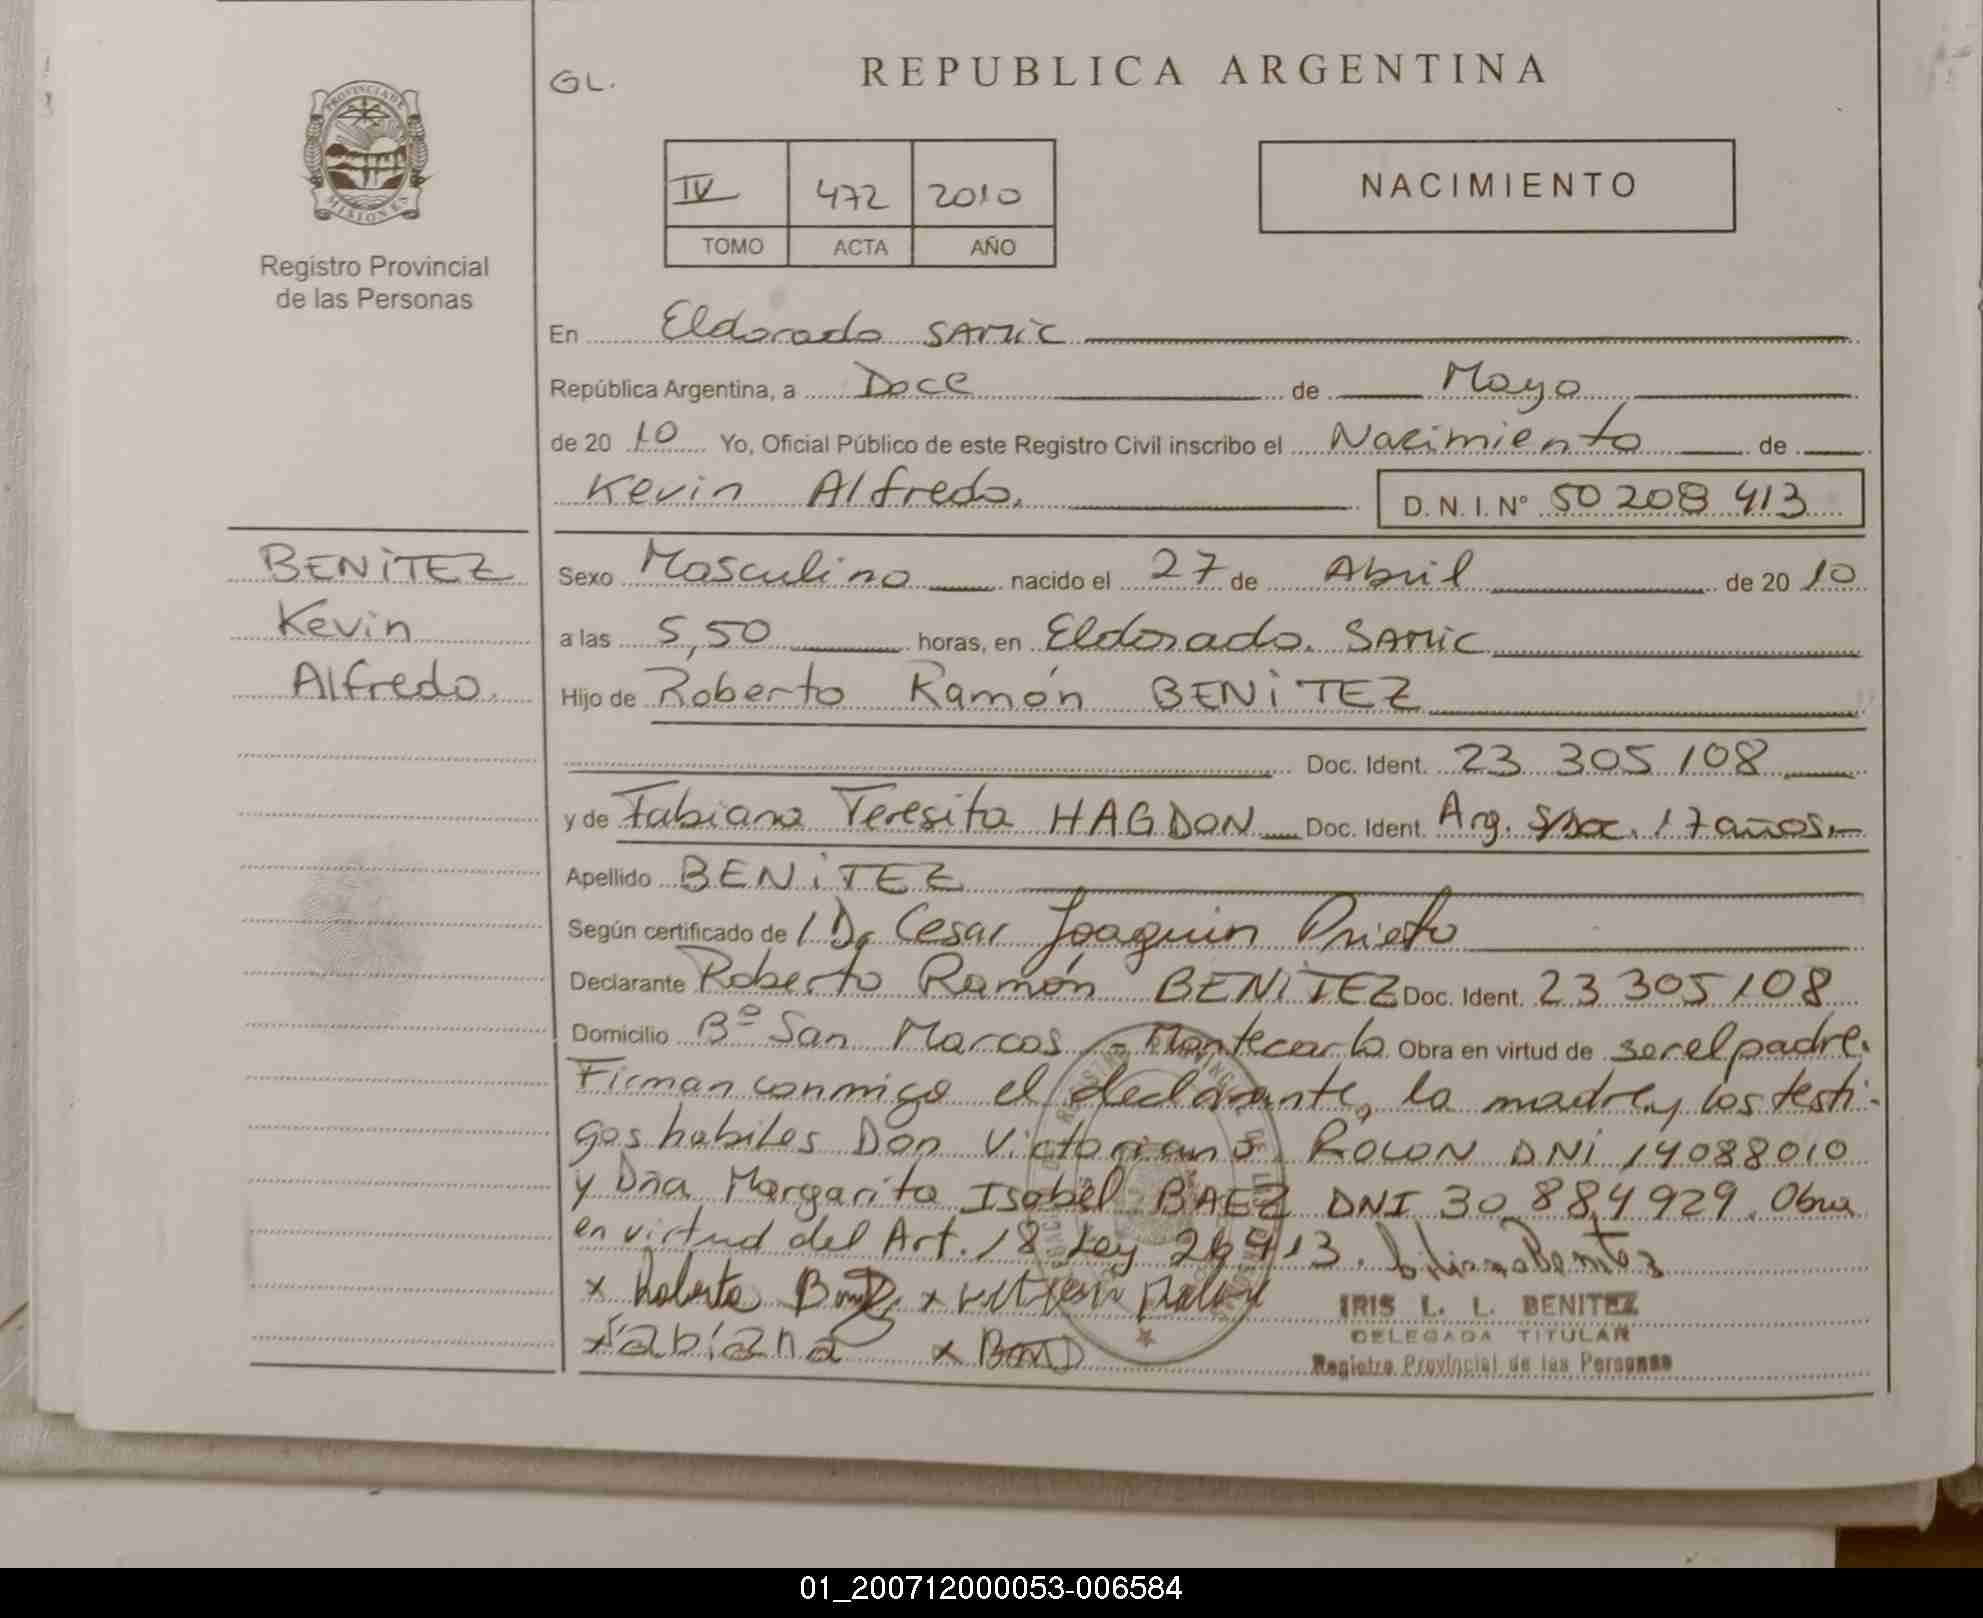 GL.
REPUBLICA ARGENTINA
PROVINCIA DE
MISIONES
Registro Provincial
de las Personas
IV 472 2010
TOMO ACTA AÑO
NACIMIENTO
En Eldorado SAMIC
República Argentina, a Doce de Mayo
de 20 10 Yo, Oficial Público de este Registro Civil inscribo el Nacimiento de
Kevin Alfredo.
D. N. I. Nº 50 208 413
BENITEZ
Kevin
Alfredo.
Sexo Masculino nacido el 27 de Abril de 20 10
a las 5,50 horas, en Eldorado. SAMIC
Hijo de Roberto Ramón BENITEZ
Doc. Ident. 23 305 108
y de Fabiana Teresita HAGDON Doc. Ident. Arg. 17 años.
Apellido BENITEZ
Según certificado de Dr Cesar Joaquin Prieto
Declarante Roberto Ramón BENITEZ Doc. Ident. 23 305 108
Domicilio Bº San Marcos - Montecarlo. Obra en virtud de ser el padre.
Firman conmigo el declarante, la madre y los testi-
gos habiles Don Victoriano ROLON DNI 14088010
y Dña Margarita Isabel BAEZ DNI 30 884 929. Obra
en virtud del Art. 18 Ley 26413.
x Roberto x
x Fabiana x
IRIS L. L. BENITEZ
DELEGADA TITULAR
Registro Provincial de las Personas
01_200712000053-006584